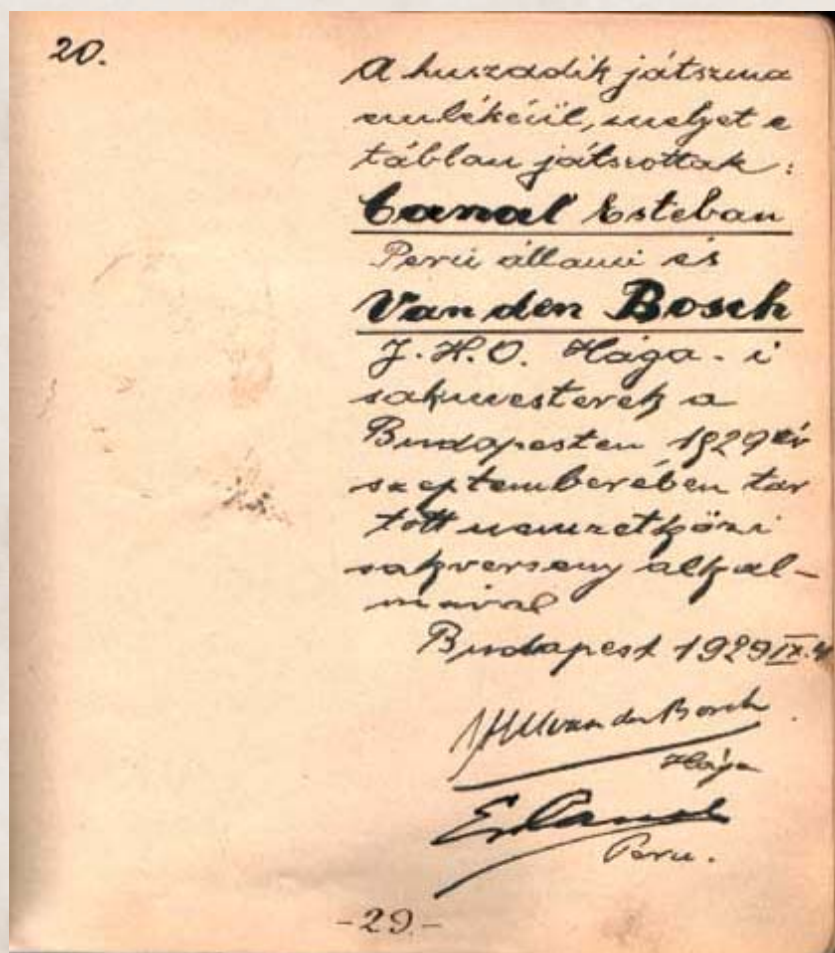 20.
A huszadik játszma
emlékéül, melyet e
táblán játszottak:
Canal Esteban
Perú állami és
Van den Bosch
J. H. O. Hága - i
sakmesterek a
Budapesten 1929 év
szeptemberében tar
tott nemzetközi
sakverseny alkal-
mával
Budapest 1929 IX.
van den Bosch
Hága
E. Canal
Peru.
-29-